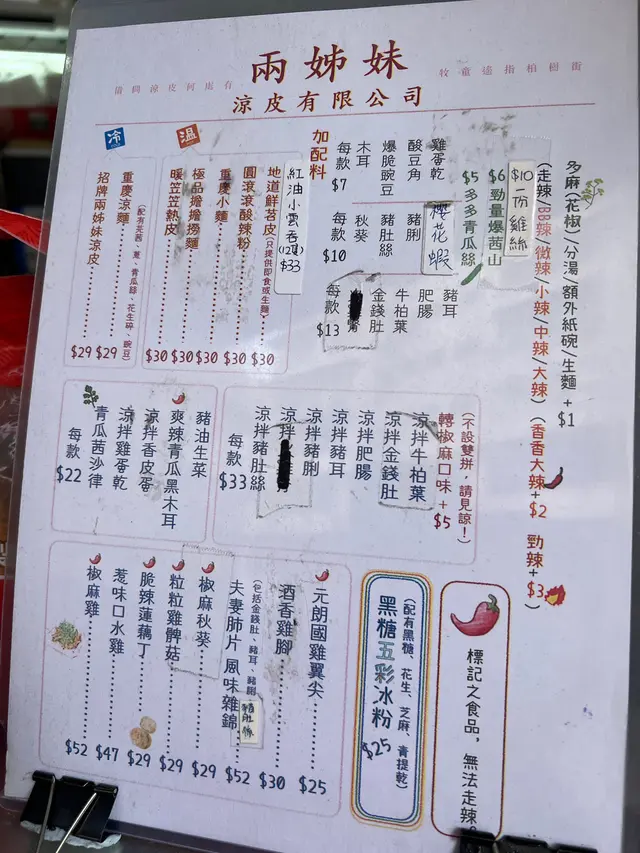 兩姊妹
涼皮有限公司
借問涼皮何處有
牧童遙指柏樹街
多麻(花椒)/分湯/額外紙碗/生麵 + $1
(走辣/BB辣/微辣/小辣/中辣/大辣) (香香大辣+$2 勁辣+$3)
加配料
$10 一份雞絲
$6 勁量爆茜山
$5 多多青瓜絲
雞蛋乾
酸豆角
爆脆豌豆
木耳
每款 $7
櫻花蝦
豬脷
豬肚絲
秋葵
每款 $10
豬耳
肥腸
牛柏葉
金錢肚
每款 $13
溫
紅油小雲吞(12隻) $33
地道鮮苕皮(只提供即食或生麵) $30
圓滾滾酸辣粉 $30
重慶小麵 $30
極品擔擔撈麵 $30
暖笠笠熱皮 $30
冷
重慶涼麵 $29
(配有芫茜、蔥、青瓜絲、花生碎、豌豆)
招牌兩姊妹涼皮 $29
(不設雙拼，請見諒！)
轉椒麻口味 + $5
涼拌牛柏葉
涼拌金錢肚
涼拌肥腸
涼拌豬耳
涼拌豬脷
涼拌
涼拌豬肚絲
每款 $33
豬油生菜
爽辣青瓜黑木耳
涼拌香皮蛋
涼拌雞蛋乾
青瓜茜沙律
每款 $22
標記之食品，無法走辣。
(配有黑糖、花生、芝麻、青提乾)
黑糖五彩冰粉 $25
元朗國雞翼尖 $25
酒香雞腳 $30
夫妻肺片風味雜錦 $52
(包括金錢肚、豬耳、豬脷 豬肚絲
椒麻秋葵 $29
粒粒雞髀菇 $29
脆辣蓮藕丁 $29
惹味口水雞 $47
椒麻雞 $52